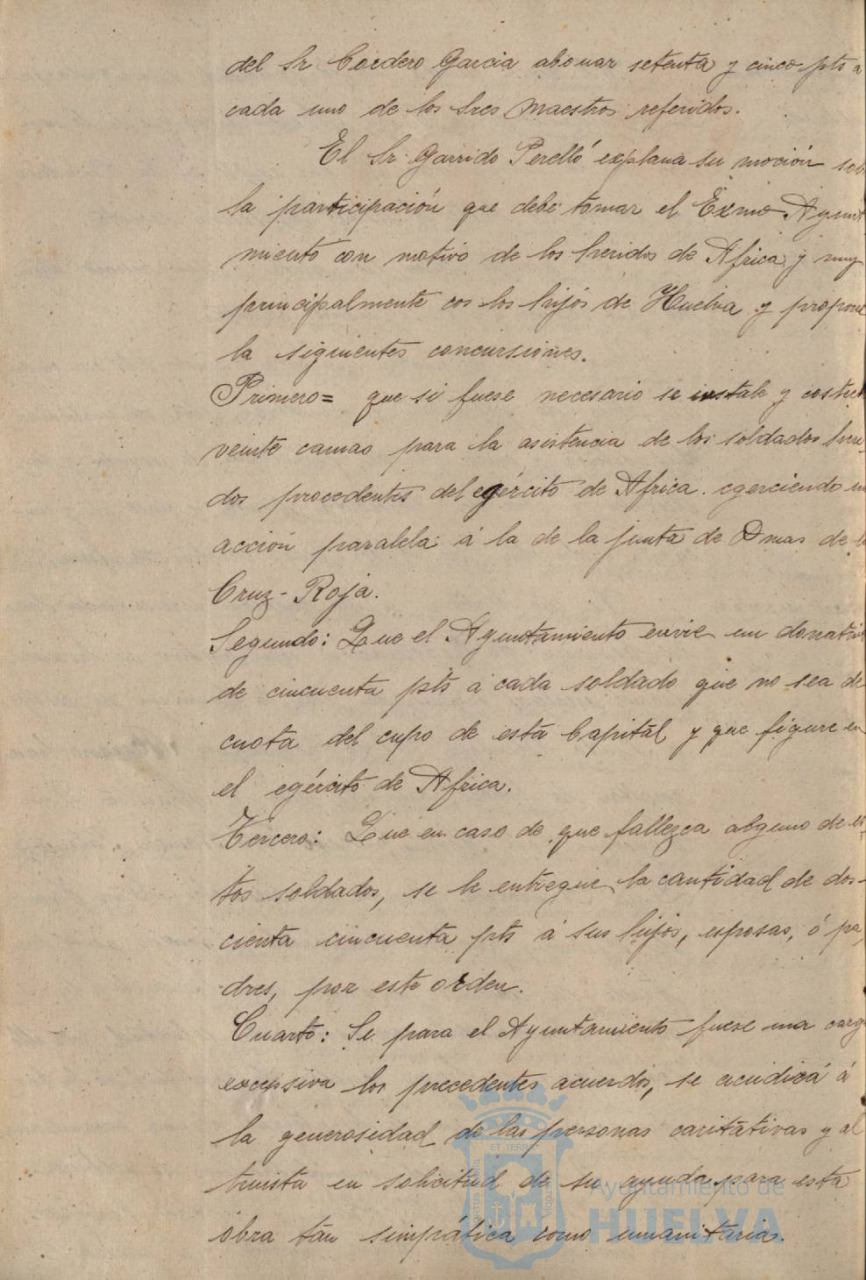 del Sr. Cordero Garcia abonar setenta y cinco pts a
cada uno de los tres Maestros referidos.
El Sr. Garrido Perelló explana su moción sob
la participación que debe tomar el Exmo. Ayunt
miento con motivo de los heridos de Africa, y muy
principalmente cos los hijos de Huelva y propone
la siguientes concursiones.
Primero= que si fuese necesario se instale y costee
veinte camas para la asistencia de los soldados heri-
dos procedentes del egército de Africa. egerciendo un
acción paralela á la de la junta de Damas de l
Cruz-Roja.
Segundo: Que el Ayuntamiento envie un donativ
de cincuenta pts á cada soldado que no sea de
cuota del cupo de esta Capital y que figure en
el egército de Africa.
Tercero: Que en caso de que fallezca alguno de es-
tos soldados, se le entregue la cantidad de dos-
cienta cincuenta pts á sus hijos, esposas, ó pa-
dres, por este orden.
Cuarto: Si para el Ayuntamiento fuese una carg
excepsiva los precedentes acuerdos, se acudirá á
la generosidad de las personas caritativas y al
truista en solicitud de su ayuda para esta
obra tan simpática como umanitaria.
Ayuntamiento de
HUELVA